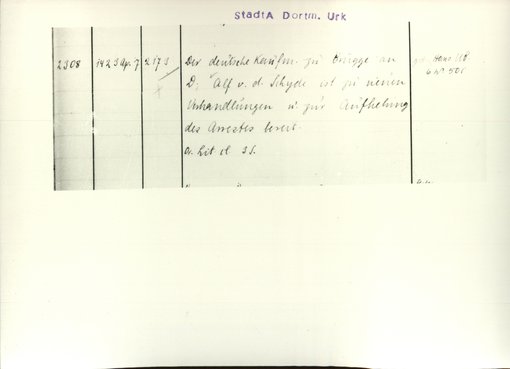 StadtA Dortm. Urk
2308 1423 Apr. 7 217
Der deutsche Kaufm. zu Brügge an
D; Alf v. d. Schyde ist zu neuen
Verhandlungen u. zur Aufhebung
des Arrestes bereit.
a. Lit cl